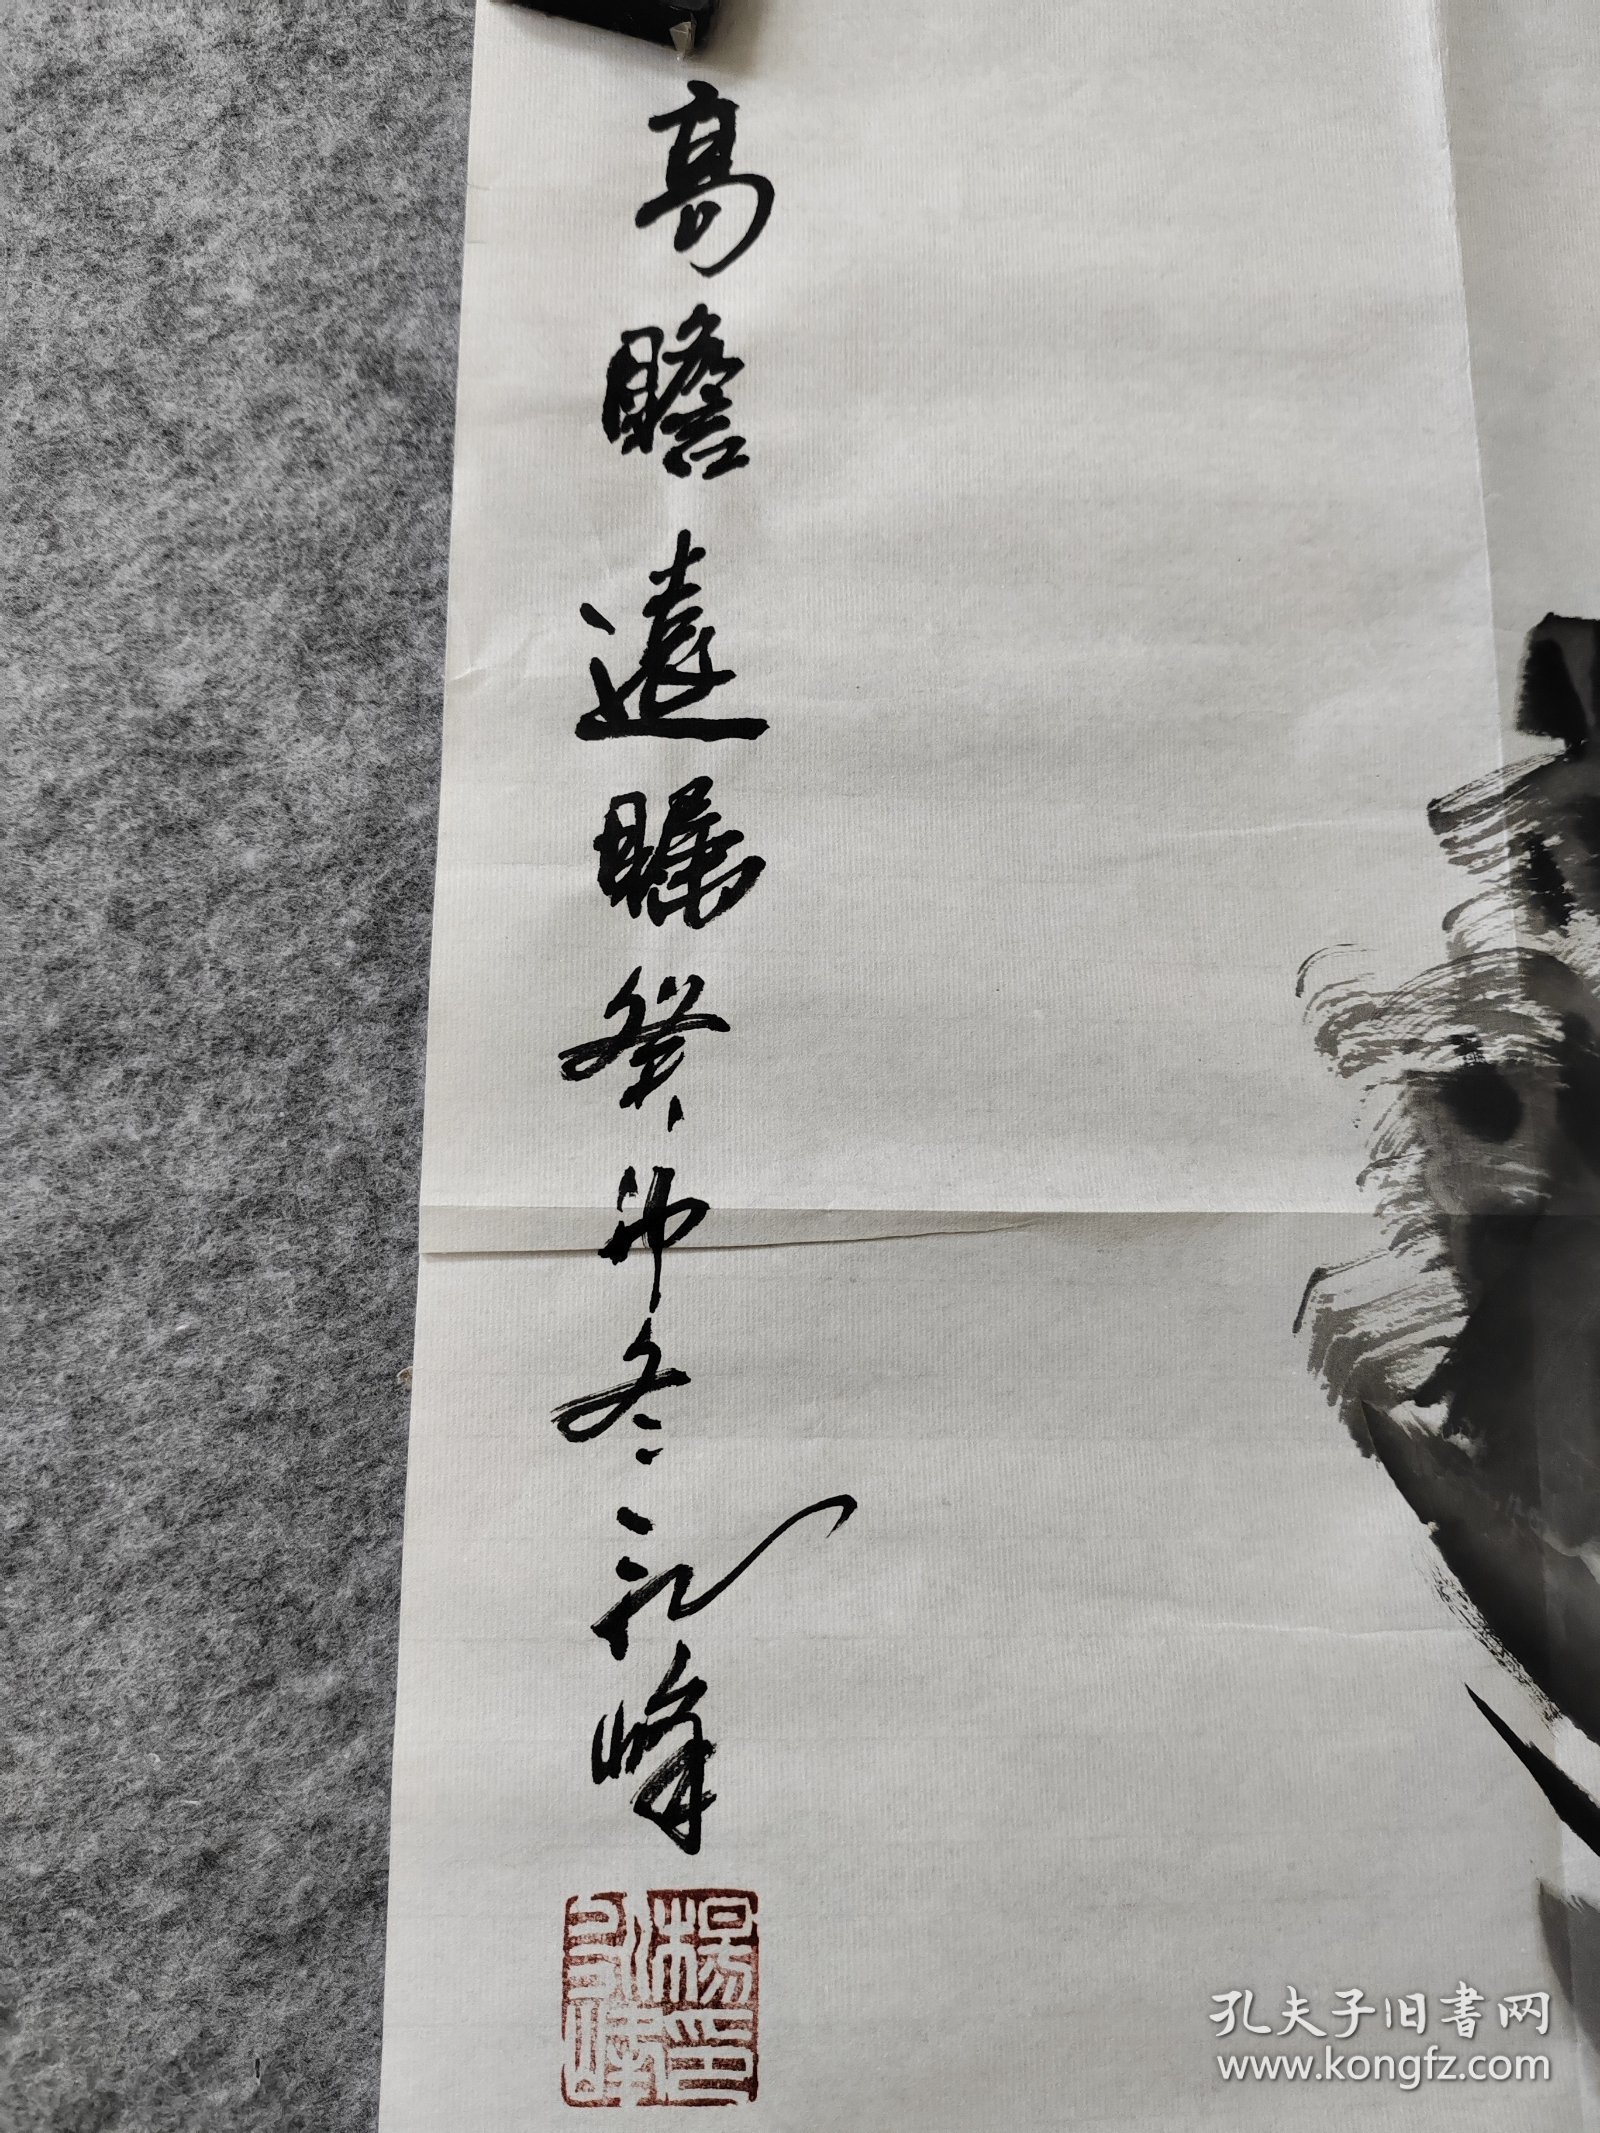 高瞻遠瞩癸卯冬峰
楊印峰
孔夫子旧書网
www.kongfz.com